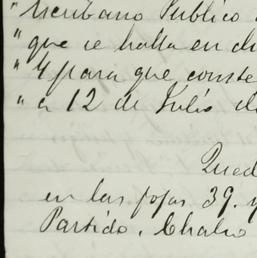 " Escribano Público
" que se halla en di
" Y para que conste
" a 12 de Julio de
Qued
en las fojas 39. y
Partido. Chalio